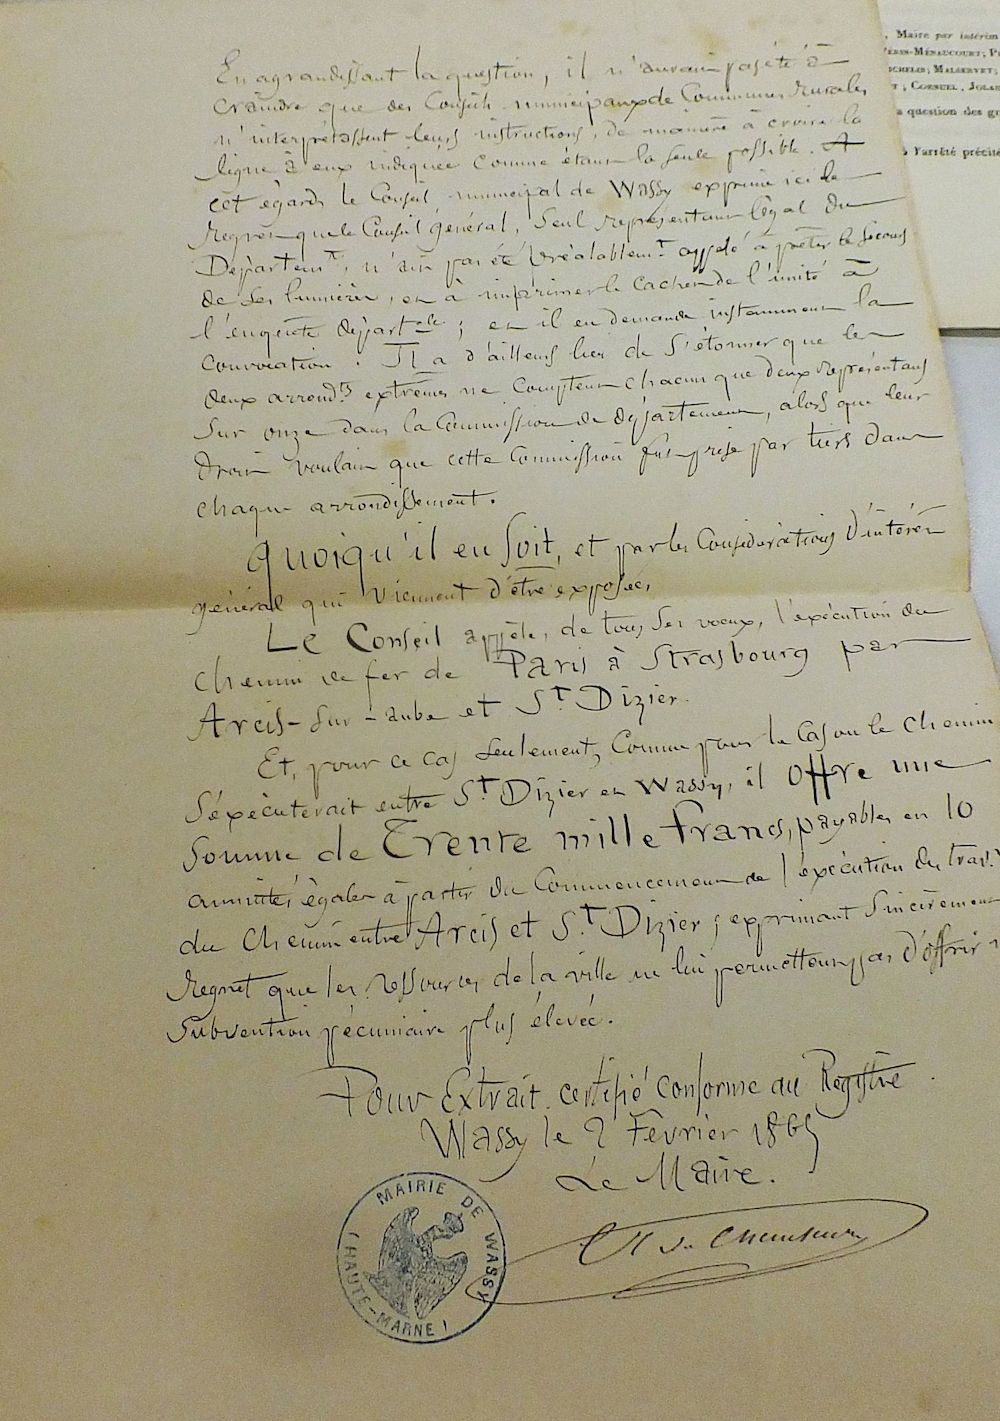 En agrandissant la question, il n'aurait pas été à
craindre que des Conseils municipaux de Communes Rurales
n'interprétassent leurs instructions, de manière à croire la
ligne à eux indiquée comme étant la seule possible. A
cet égard le Conseil municipal de Wassy exprime ici le
Regret que le Conseil général, seul représentant légal du
Départemt, n'ait pas été préalablemt appelé à prêter le secours
de ses lumières, et à imprimer le cachet de l'unité à
l'enquête départale; et il en demande instamment la
convocation. Il a d'ailleurs lieu de s'étonner que les
deux arrondts extrêmes ne comptent chacun que deux représentans
sur onze dans la Commission de département, alors que leur
droit voulait que cette Commission fut prise par tiers dans
chaque arrondissement.
Quoiqu'il en soit, et par les Considérations d'intérêt
général qui viennent d'être exposées,
Le Conseil appèle, de tous ses voeux, l'exécution du
chemin de fer de Paris à Strasbourg par
Arcis-sur-aube et St Dizier.
Et, pour ce cas seulement, comme pour le cas où le chemin
s'exécuterait entre St Dizier et Wassy, il offre une
somme de Trente mille francs, payables en 10
annuités égales à partir du commencement de l'exécution des trav.x
du chemin entre Arcis et St Dizier; exprimant sincèrement
Regret que les ressources de la ville ne lui permettent pas d'offrir
subvention pécuniaire plus élevée.
Pour Extrait certifié conforme au Registre
Wassy le 2 Février 1865
Le Maire.
MAIRIE DE WASSY
(HAUTE-MARNE)
, Maire par intérim
MENAUCOURT; P
MICHELIN; MALSERVET;
; CORNUEL, JOLAI
a question des gr
l'arrêté précité